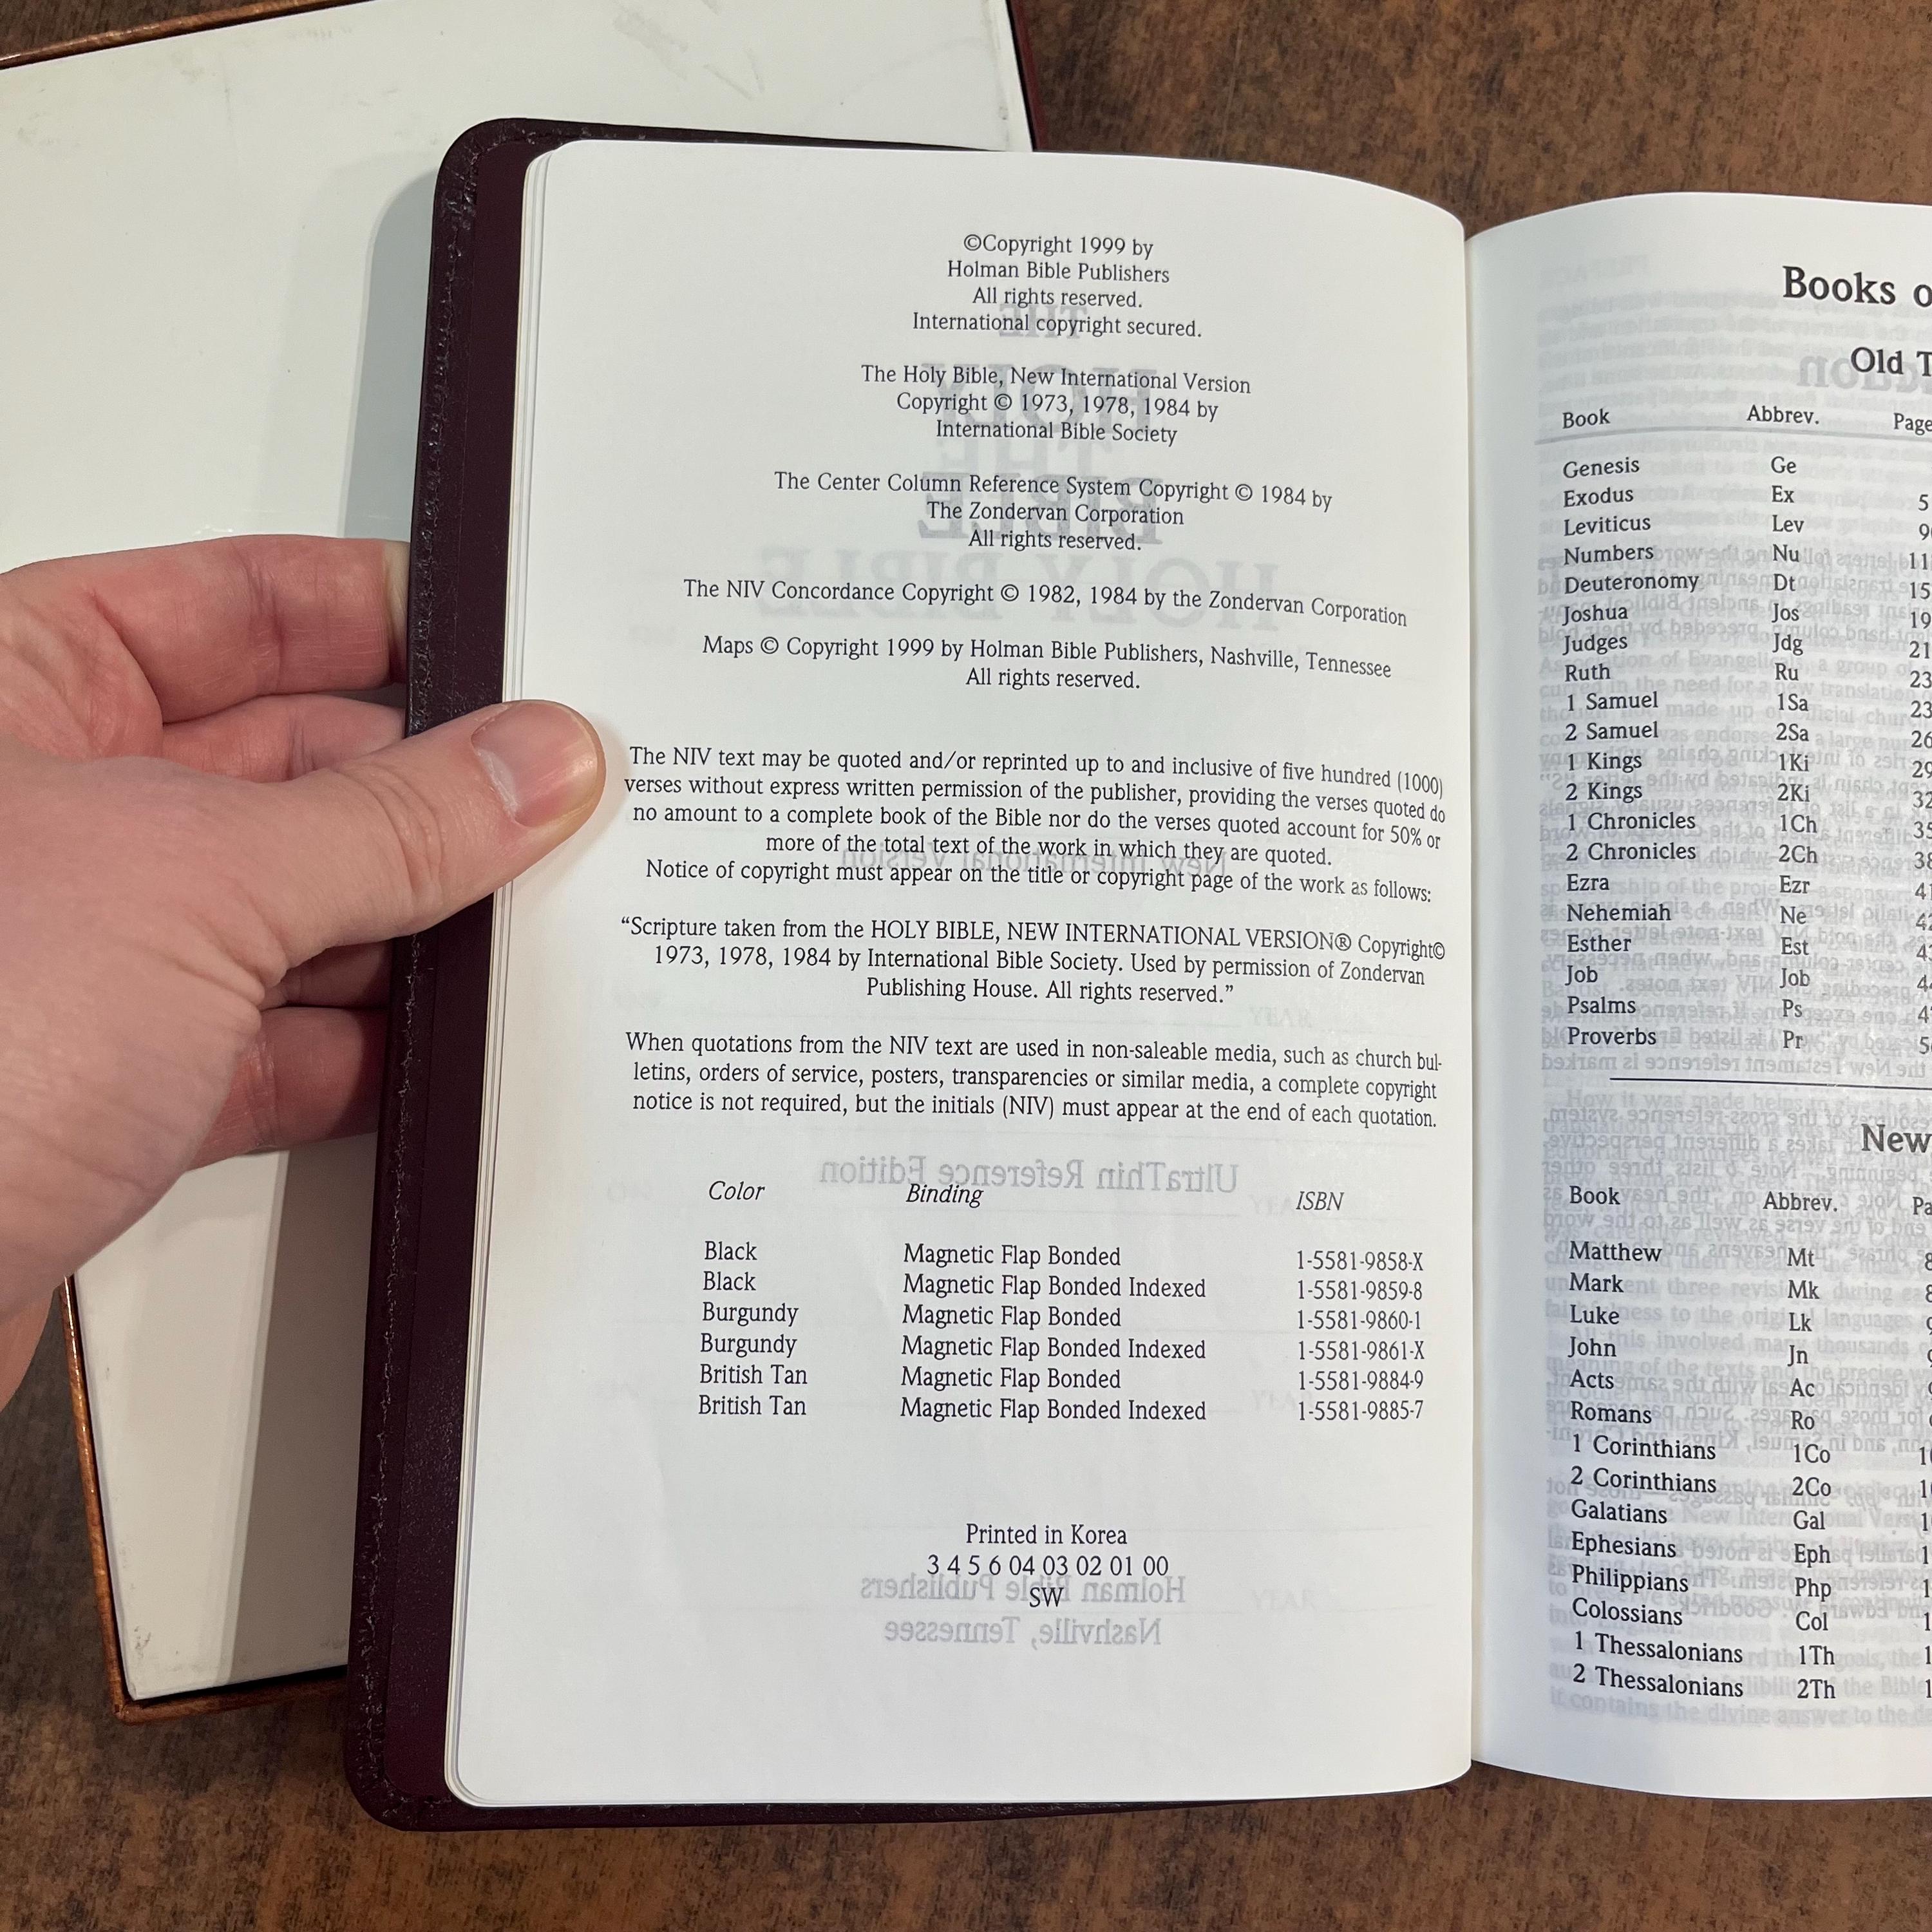 ©Copyright 1999 by
Holman Bible Publishers
All rights reserved.
International copyright secured.
The Holy Bible, New International Version
Copyright © 1973, 1978, 1984 by
International Bible Society
The Center Column Reference System Copyright © 1984 by
The Zondervan Corporation
All rights reserved.
The NIV Concordance Copyright © 1982, 1984 by the Zondervan Corporation
Maps © Copyright 1999 by Holman Bible Publishers, Nashville, Tennessee
All rights reserved.
The NIV text may be quoted and/or reprinted up to and inclusive of five hundred (1000)
verses without express written permission of the publisher, providing the verses quoted do
no amount to a complete book of the Bible nor do the verses quoted account for 50% or
more of the total text of the work in which they are quoted.
Notice of copyright must appear on the title or copyright page of the work as follows:
“Scripture taken from the HOLY BIBLE, NEW INTERNATIONAL VERSION® Copyright©
1973, 1978, 1984 by International Bible Society. Used by permission of Zondervan
Publishing House. All rights reserved.”
When quotations from the NIV text are used in non-saleable media, such as church bul-
letins, orders of service, posters, transparencies or similar media, a complete copyright
notice is not required, but the initials (NIV) must appear at the end of each quotation.
Color Binding ISBN
Black Magnetic Flap Bonded 1-5581-9858-X
Black Magnetic Flap Bonded Indexed 1-5581-9859-8
Burgundy Magnetic Flap Bonded 1-5581-9860-1
Burgundy Magnetic Flap Bonded Indexed 1-5581-9861-X
British Tan Magnetic Flap Bonded 1-5581-9884-9
British Tan Magnetic Flap Bonded Indexed 1-5581-9885-7
Printed in Korea
3 4 5 6 04 03 02 01 00
SW
Books
Old
Book Abbrev. Page
Genesis Ge
Exodus Ex
Leviticus Lev
Numbers Nu
Deuteronomy Dt
Joshua Jos
Judges Jdg
Ruth Ru
1 Samuel 1Sa
2 Samuel 2Sa
1 Kings 1Ki
2 Kings 2Ki
1 Chronicles 1Ch
2 Chronicles 2Ch
Ezra Ezr
Nehemiah Ne
Esther Est
Job Job
Psalms Ps
Proverbs Pr
New
Book Abbrev.
Matthew Mt
Mark Mk
Luke Lk
John Jn
Acts Ac
Romans Ro
1 Corinthians 1Co
2 Corinthians 2Co
Galatians Gal
Ephesians Eph
Philippians Php
Colossians Col
1 Thessalonians 1Th
2 Thessalonians 2Th